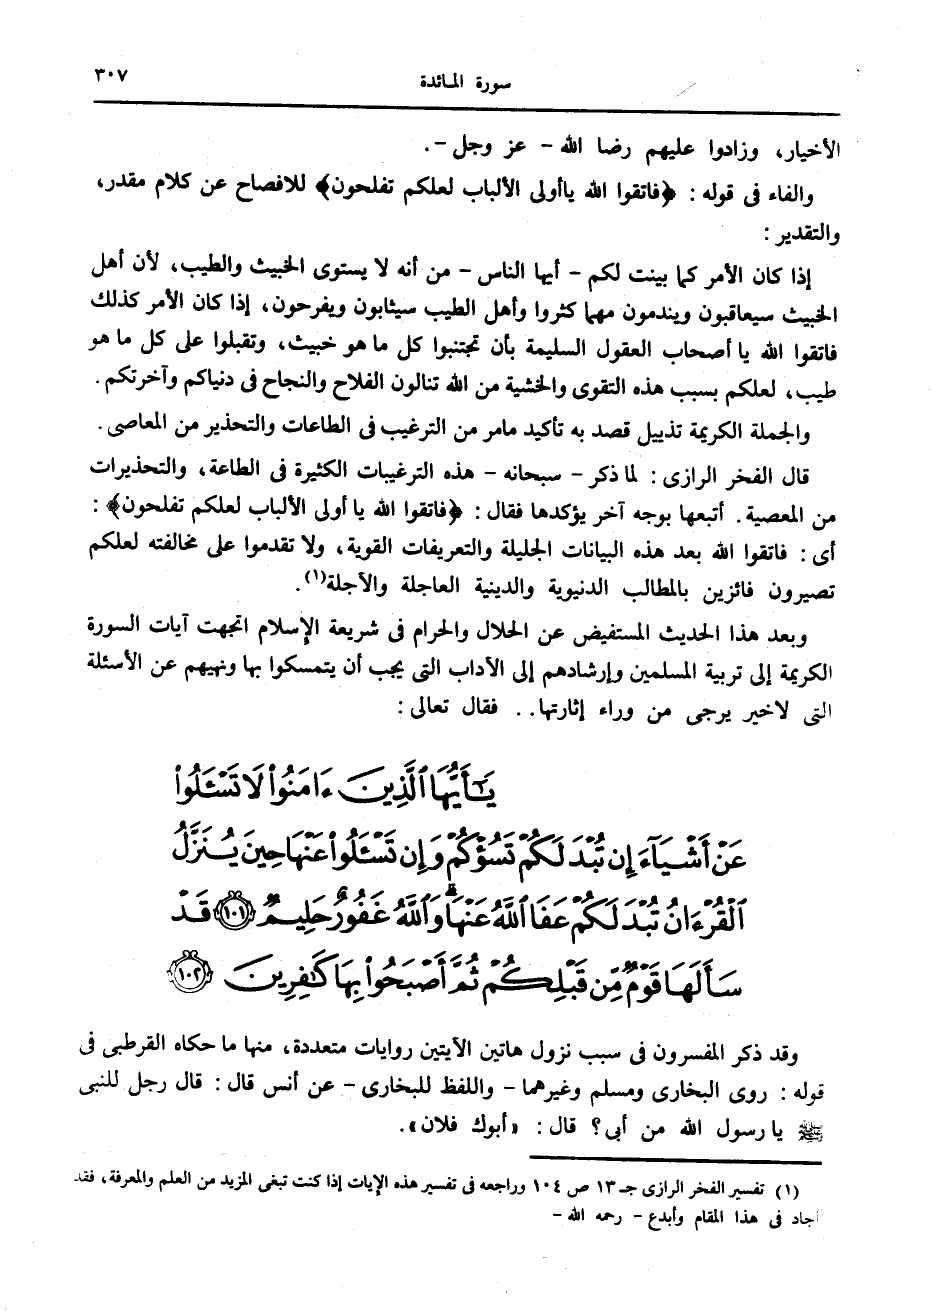 سورة المائدة ٣٠٧
الأخيار، وزادوا عليهم رضا الله - عز وجل -.
والفاء فى قوله : ﴿فاتقوا الله ياأولى الألباب لعلكم تفلحون﴾ للافصاح عن كلام مقدر،
والتقدير :
إذا كان الأمر كما بينت لكم - أيها الناس - من أنه لا يستوى الخبيث والطيب، لأن أهل
الخبيث سيعاقبون ويندمون مهما كثروا وأهل الطيب سيثابون ويفرحون، إذا كان الأمر كذلك
فاتقوا الله يا أصحاب العقول السليمة بأن تجتنبوا كل ما هو خبيث، وتقبلوا على كل ما هو
طيب، لعلكم بسبب هذه التقوى والخشية من الله تنالون الفلاح والنجاح فى دنياكم وآخرتكم.
والجملة الكريمة تذييل قصد به تأكيد مامر من الترغيب فى الطاعات والتحذير من المعاصى.
قال الفخر الرازى : لما ذكر - سبحانه - هذه الترغيبات الكثيرة فى الطاعة، والتحذيرات
من المعصية. أتبعها بوجه آخر يؤكدها فقال : ﴿فاتقوا الله يا أولى الألباب لعلكم تفلحون﴾ :
أى : فاتقوا الله بعد هذه البيانات الجليلة والتعريفات القوية، ولا تقدموا على مخالفته لعلكم
تصيرون فائزين بالمطالب الدنيوية والدينية العاجلة والآجلة(١).
وبعد هذا الحديث المستفيض عن الحلال والحرام فى شريعة الإسلام اتجهت آيات السورة
الكريمة إلى تربية المسلمين وإرشادهم إلى الآداب التى يجب أن يتمسكوا بها ونهيهم عن الأسئلة
التى لاخير يرجى من وراء إثارتها.. فقال تعالى :
يَٰٓأَيُّهَا ٱلَّذِينَ ءَامَنُوا۟ لَا تَسْـَٔلُوا۟
عَنْ أَشْيَآءَ إِن تُبْدَ لَكُمْ تَسُؤْكُمْ وَإِن تَسْـَٔلُوا۟ عَنْهَا حِينَ يُنَزَّلُ
ٱلْقُرْءَانُ تُبْدَ لَكُمْ عَفَا ٱللَّهُ عَنْهَا ۗ وَٱللَّهُ غَفُورٌ حَلِيمٌ ١٠١ قَدْ
سَأَلَهَا قَوْمٌ مِّن قَبْلِكُمْ ثُمَّ أَصْبَحُوا۟ بِهَا كَٰفِرِينَ ١٠٢
وقد ذكر المفسرون فى سبب نزول هاتين الآيتين روايات متعددة، منها ما حكاه القرطبى فى
قوله : روى البخارى ومسلم وغيرهما - واللفظ للبخارى - عن أنس قال : قال رجل للنبى
ﷺ يا رسول الله من أبى؟ قال : «أبوك فلان».
(١) تفسير الفخر الرازى جـ ١٣ ص ١٠٤ وراجعه فى تفسير هذه الإيات إذا كنت تبغى المزيد من العلم والمعرفة، فقد
أجاد فى هذا المقام وأبدع - رحمه الله -